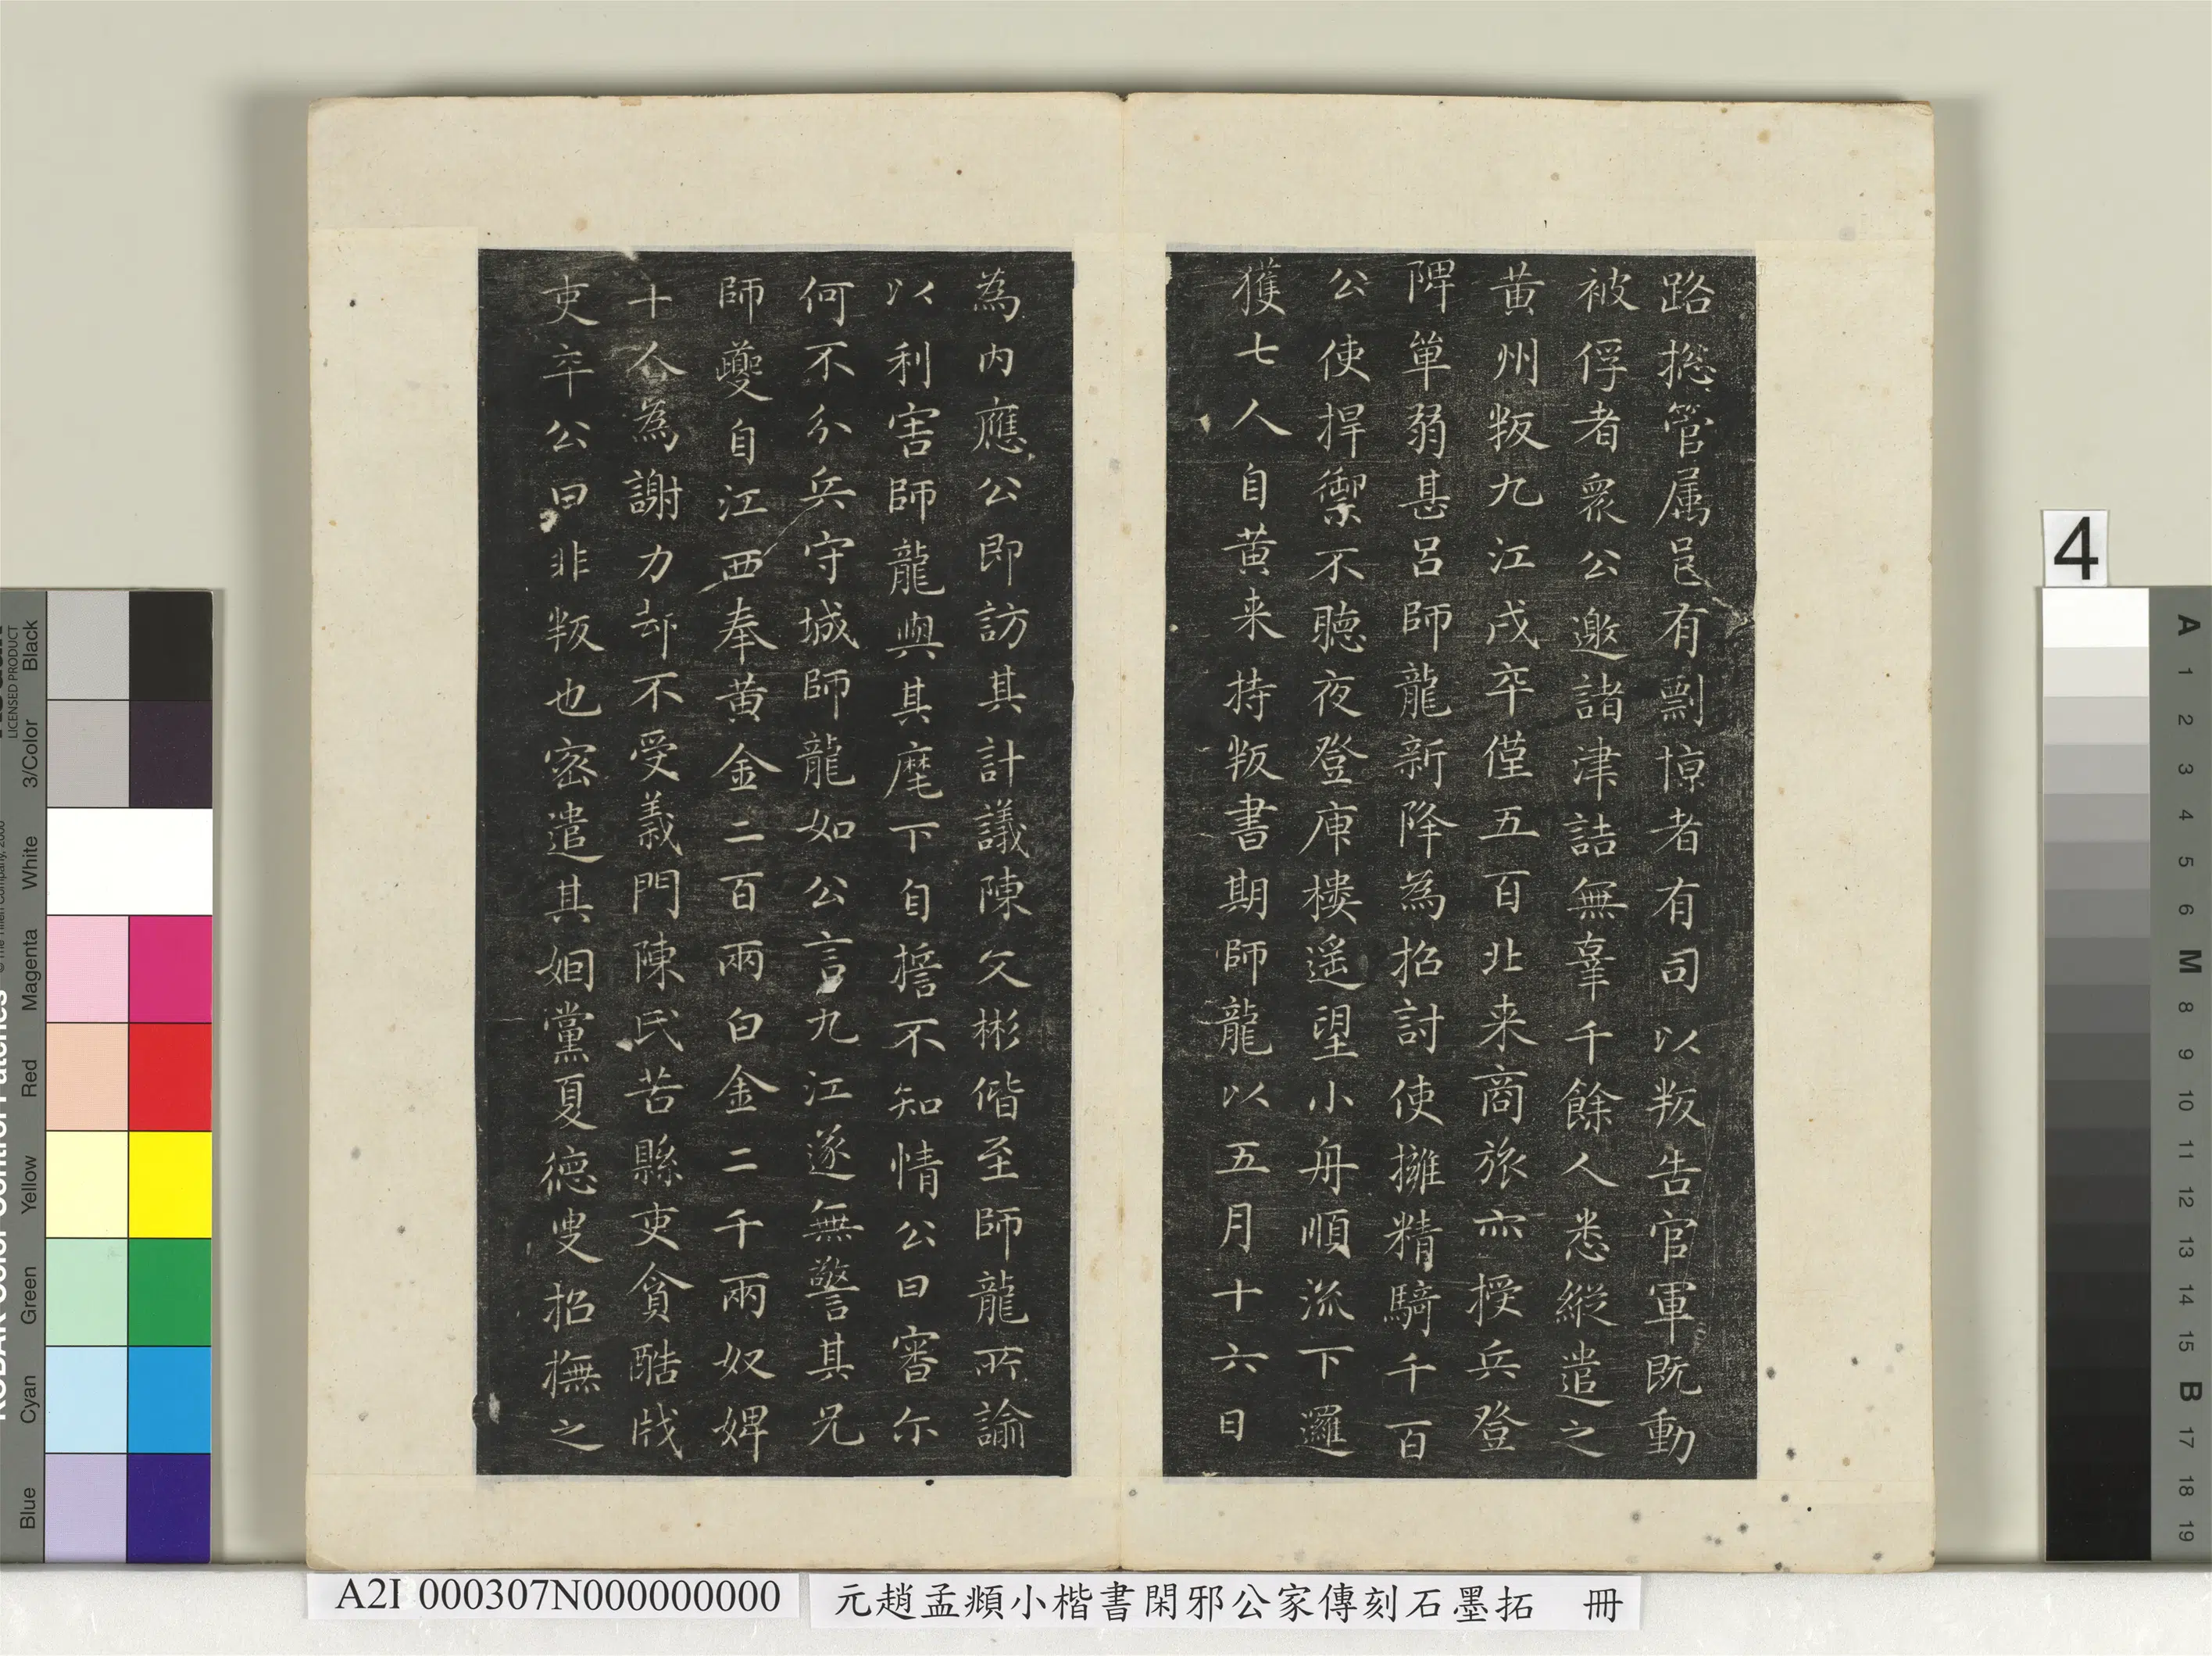 路揔管属邑有剽掠者有司以叛告官軍既動
被俘者衆公邀諸津詰無辜千餘人悉縱遣之
黄州叛九江戍卒僅五百北来商旅亦授兵登
陴單弱甚呂師龍新降為招討使擁精騎千百
公使捍禦不聽夜登庾樓遥望小舟順流下邏
獲七人自黄来持叛書期師龍以五月十六日
為内應公即訪其計議陳文彬偕至師龍所諭
以利害師龍與其麾下自誓不知情公曰審尔
何不分兵守城師龍如公言九江遂無警其兄
師夔自江西奉黄金二百兩白金二千兩奴婢
十人為謝力却不受義門陳氏苦縣吏貪酷戕
吏卒公曰非叛也密遣其姻黨夏德叟招撫之
A2I 000307N000000000
元趙孟頫小楷書閑邪公家傳刻石墨拓 冊
4
KODAK Color Control Patches
© The Tiffen Company, 2000
LICENSED PRODUCT
Black
3/Color
White
Magenta
Red
Yellow
Green
Cyan
Blue
A
1
2
3
4
5
6
M
8
9
10
11
12
13
14
15
B
17
18
19